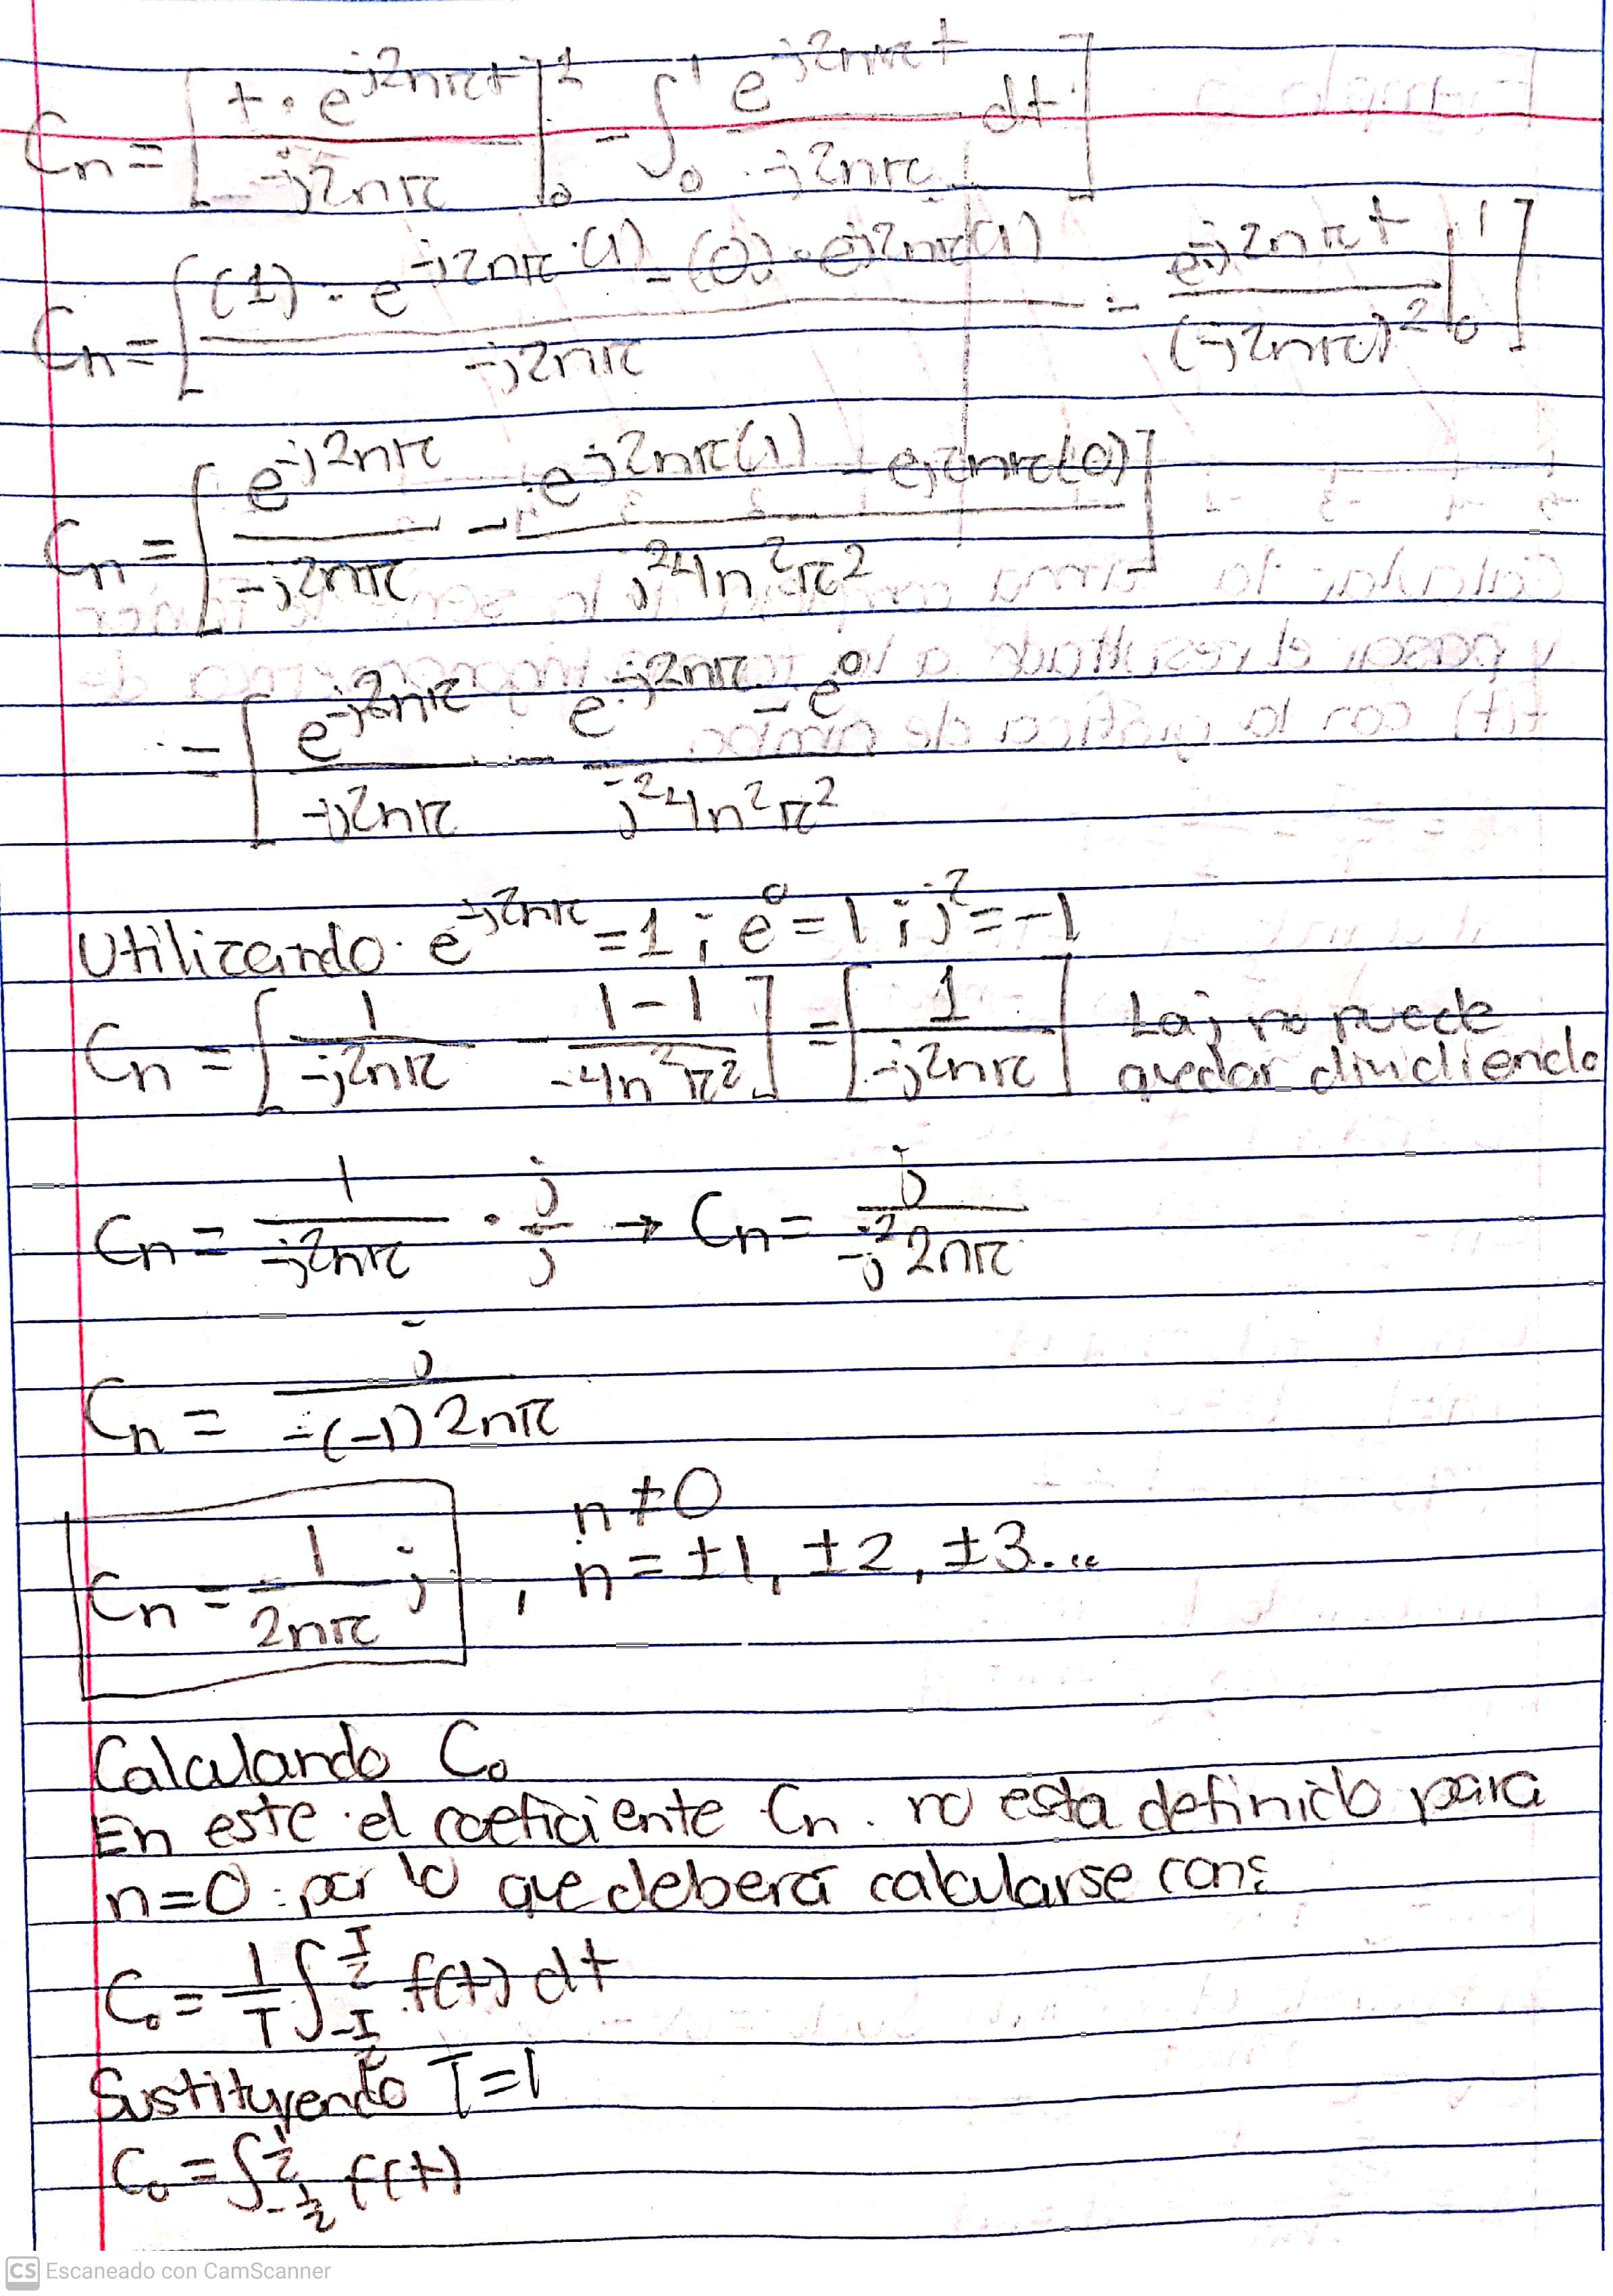 Cn = [ t · e^-j2nπt / -j2nπ |₀¹ - ∫₀¹ e^-j2nπt / -j2nπ dt ]
Cn = [ (1) · e^-j2nπ(1) - (0) · e^-j2nπ(1) / -j2nπ - e^-j2nπt / (-j2nπ)² |₀¹ ]
Cn = [ e^-j2nπ / -j2nπ - e^-j2nπ(1) - e^-j2nπ(0) / j²4n²π² ]
= [ e^-j2nπ / -j2nπ - e^-j2nπ - e⁰ / j²4n²π²
Utilizando e^-j2nπ = 1 ; e⁰ = 1 ; j² = -1
Cn = [ 1 / -j2nπ - 1-1 / -4n²π² ] = [ 1 / -j2nπ ] La j no puede
quedar dividiendo
Cn = 1 / -j2nπ · j / j → Cn = j / -j²2nπ
Cn = j / -(-1)2nπ
n ≠ 0
Cn = 1 / 2nπ j , n = ±1, ±2, ±3...
Calculando C₀
En este el coeficiente Cn no esta definido para
n=0 por lo que deberá calcularse con:
C₀ = 1/T ∫_-T/2^T/2 f(t) dt
Sustituyendo T=1
C₀ = ∫_-1/2^1/2 f(t)
CS Escaneado con CamScanner